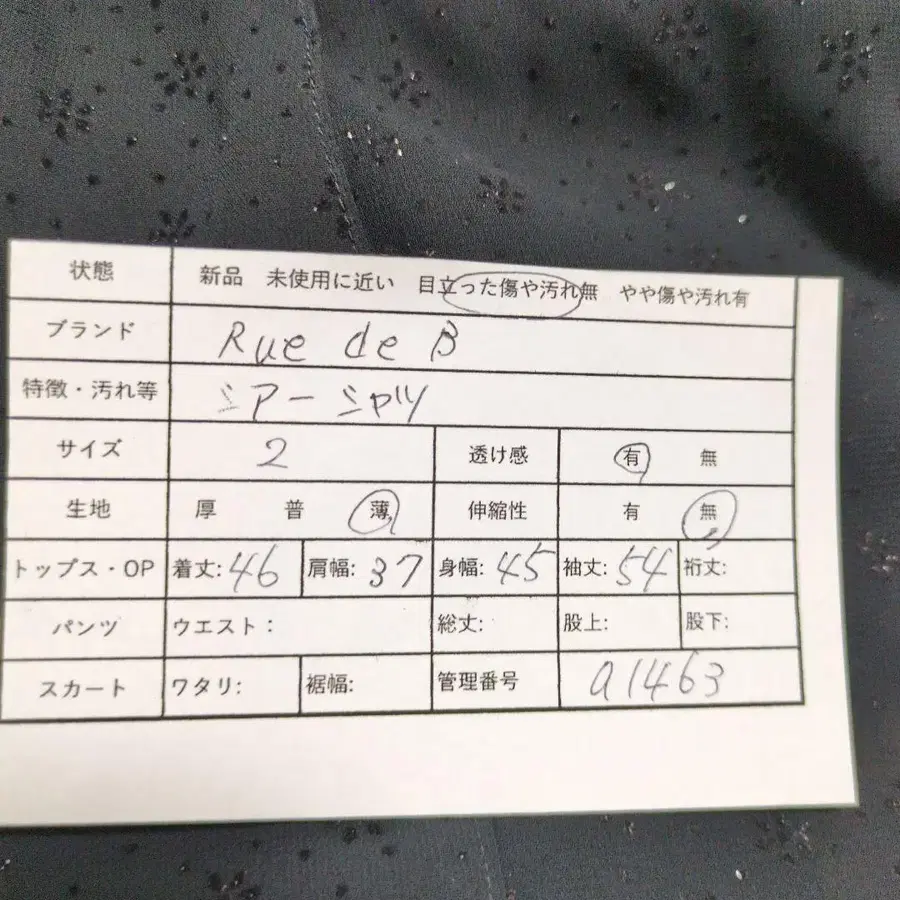 状態 新品 未使用に近い 目立った傷や汚れ無 やや傷や汚れ有
ブランド Rue de B
特徴・汚れ等 シアーシャツ
サイズ 2 透け感 有 無
生地 厚 普 薄 伸縮性 有 無
トップス・OP 着丈: 46 肩幅: 37 身幅: 45 袖丈: 54 裄丈:
パンツ ウエスト: 総丈: 股上: 股下:
スカート ワタリ: 裾幅: 管理番号 a1463